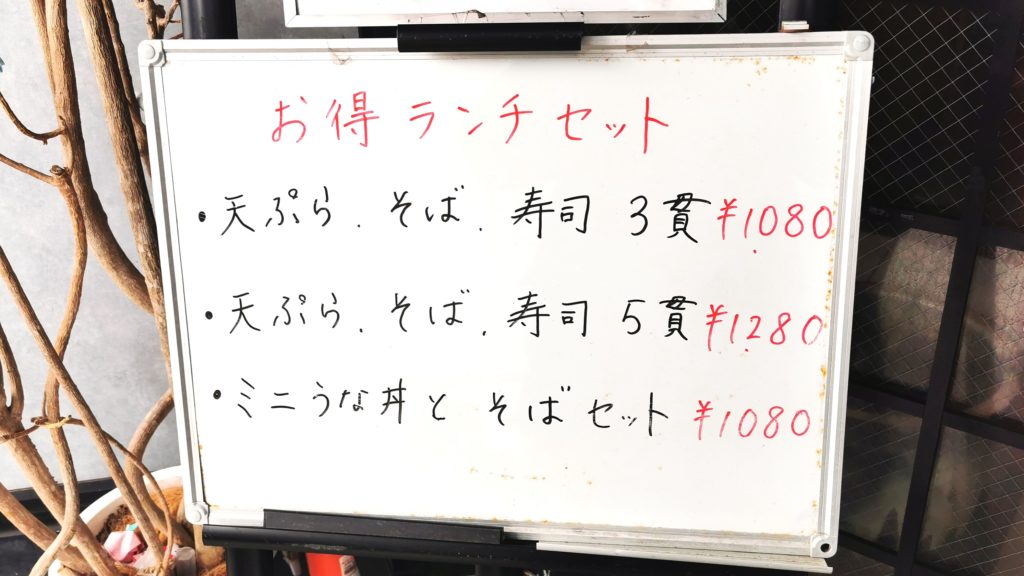 お得ランチセット
・天ぷら.そば.寿司 3貫 ¥1080
・天ぷら.そば.寿司 5貫 ¥1280
・ミニうな丼と そばセット ¥1080